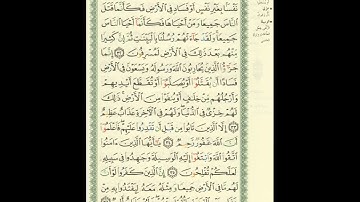 نَفْسًا بِغَيْرِ نَفْسٍ أَوْ فَسَادٍ فِي الْأَرْضِ فَكَأَنَّمَا قَتَلَ
النَّاسَ جَمِيعًا وَمَنْ أَحْيَاهَا فَكَأَنَّمَا أَحْيَا النَّاسَ
جَمِيعًا وَلَقَدْ جَاءَتْهُمْ رُسُلُنَا بِالْبَيِّنَاتِ ثُمَّ إِنَّ كَثِيرًا
مِنْهُم بَعْدَ ذَٰلِكَ فِي الْأَرْضِ لَمُسْرِفُونَ ٣٢ إِنَّمَا
جَزَاءُ الَّذِينَ يُحَارِبُونَ اللَّهَ وَرَسُولَهُ وَيَسْعَوْنَ فِي الْأَرْضِ
فَسَادًا أَن يُقَتَّلُوا أَوْ يُصَلَّبُوا أَوْ تُقَطَّعَ أَيْدِيهِمْ
وَأَرْجُلُهُم مِّنْ خِلَافٍ أَوْ يُنفَوْا مِنَ الْأَرْضِ ذَٰلِكَ
لَهُمْ خِزْيٌ فِي الدُّنْيَا وَلَهُمْ فِي الْآخِرَةِ عَذَابٌ عَظِيمٌ
٣٣ إِلَّا الَّذِينَ تَابُوا مِن قَبْلِ أَن تَقْدِرُوا عَلَيْهِمْ فَاعْلَمُوا
أَنَّ اللَّهَ غَفُورٌ رَّحِيمٌ ٣٤ يَا أَيُّهَا الَّذِينَ آمَنُوا
اتَّقُوا اللَّهَ وَابْتَغُوا إِلَيْهِ الْوَسِيلَةَ وَجَاهِدُوا فِي سَبِيلِهِ
لَعَلَّكُمْ تُفْلِحُونَ ٣٥ إِنَّ الَّذِينَ كَفَرُوا لَوْ أَنَّ
لَهُم مَّا فِي الْأَرْضِ جَمِيعًا وَمِثْلَهُ مَعَهُ لِيَفْتَدُوا بِهِ